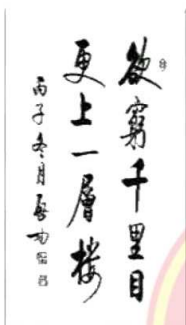 欲窮千里目
更上一層樓
丙子冬月啟功